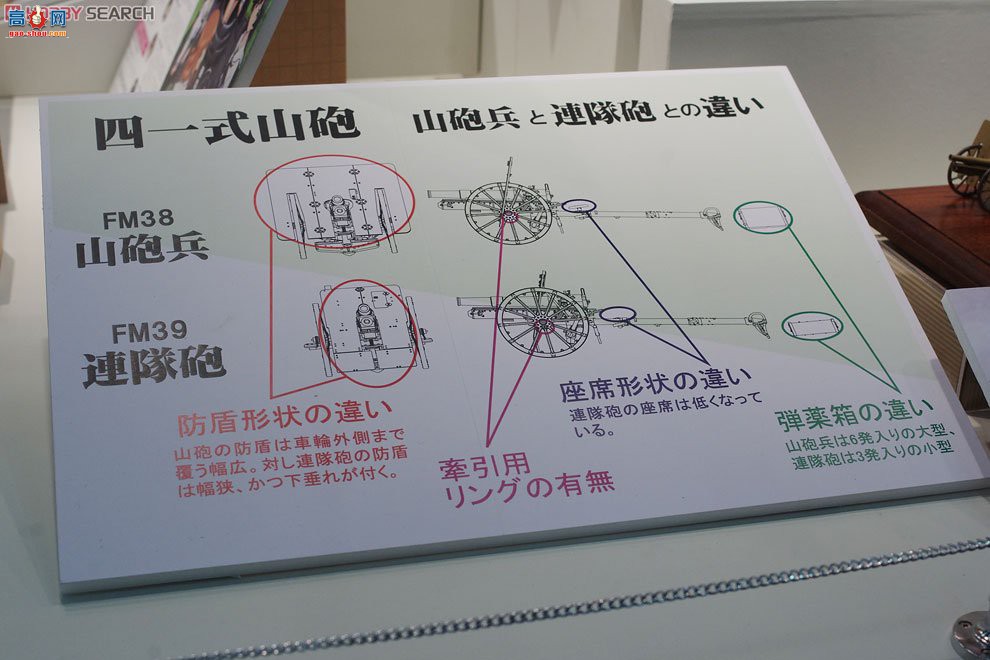 HOBBY SEARCH
高手网
gao-shou.com
四一式山砲
山砲兵と連隊砲との違い
FM38
山砲兵
FM39
連隊砲
防盾形状の違い
山砲の防盾は車輪外側まで
覆う幅広。対し連隊砲の防盾
は幅狭、かつ下垂れが付く。
牽引用
リングの有無
座席形状の違い
連隊砲の座席は低くなって
いる。
弾薬箱の違い
山砲兵は6発入りの大型、
連隊砲は3発入りの小型